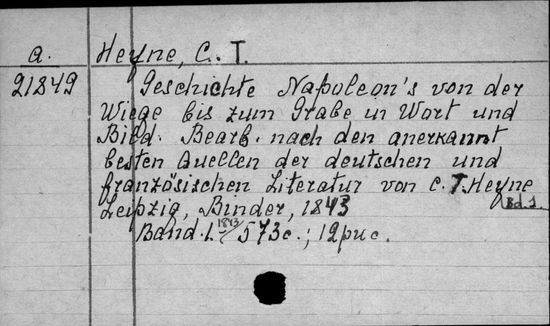 a. Heyne, C. T.
21849 Geschichte Napoleon's von der
Wiege bis zum Grabe in Wort und
Bild. Bearb. nach den anerkannt
besten Quellen der deutschen und
französischen Literatur von C. T. Heyne
Leipzig, Binder, 1843 Bd. 1.
Band. 1. 1843/ 573c.; 12рис.